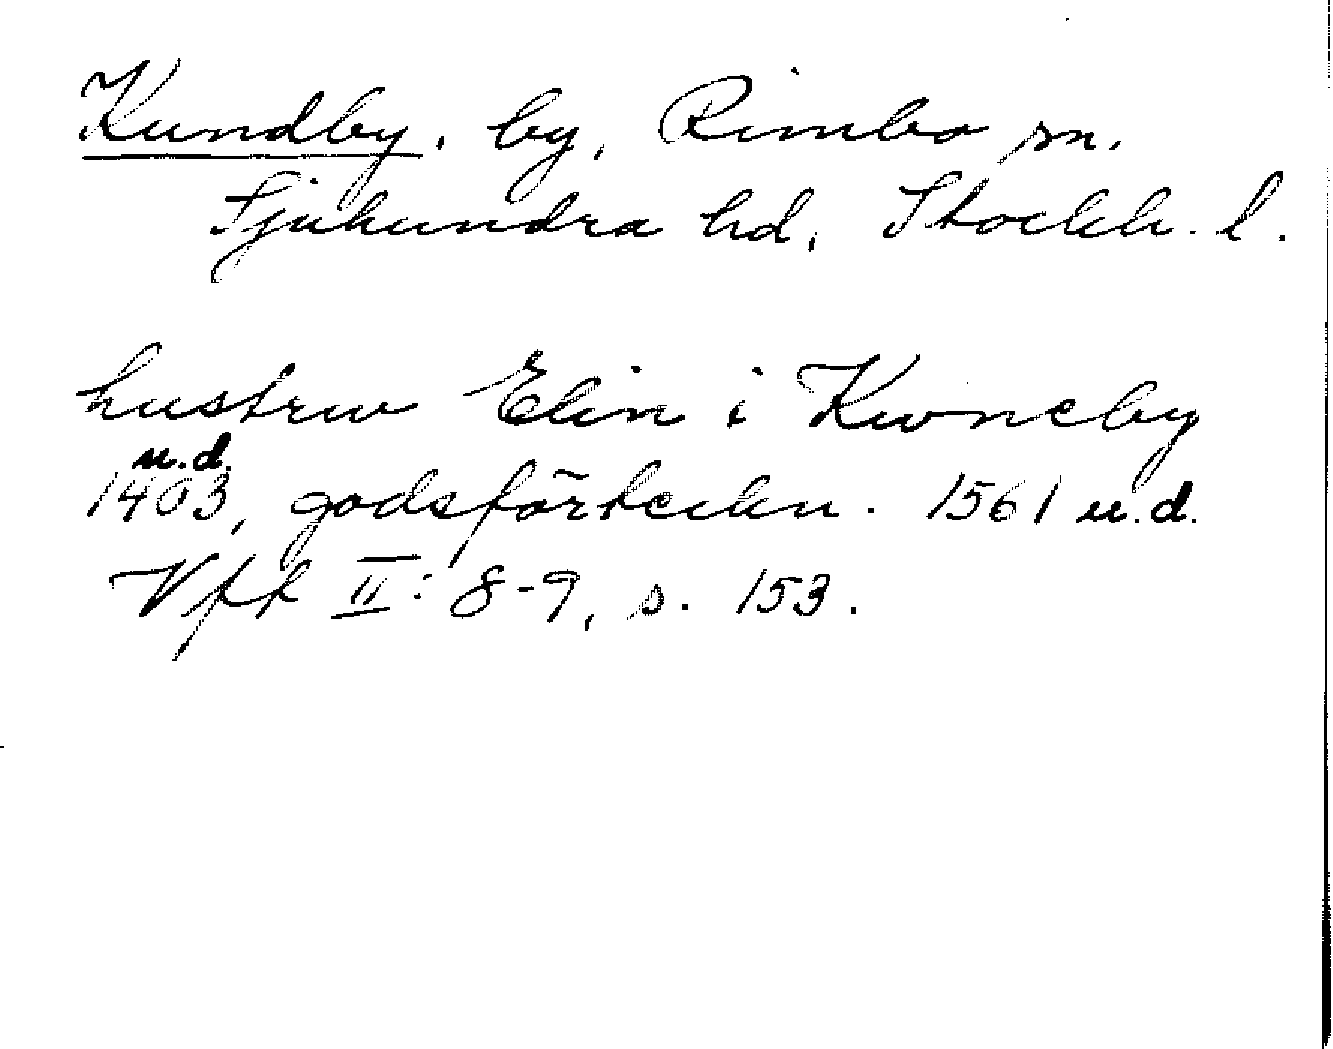 Kundby, by, Rimbo sn.
Sjuhundra hd, Stockh. l.
hustrw Elin i Kwneby
u.d.
1403, godsförteckn. 1561 u.d.
Vfk II: 8-9, s. 153.